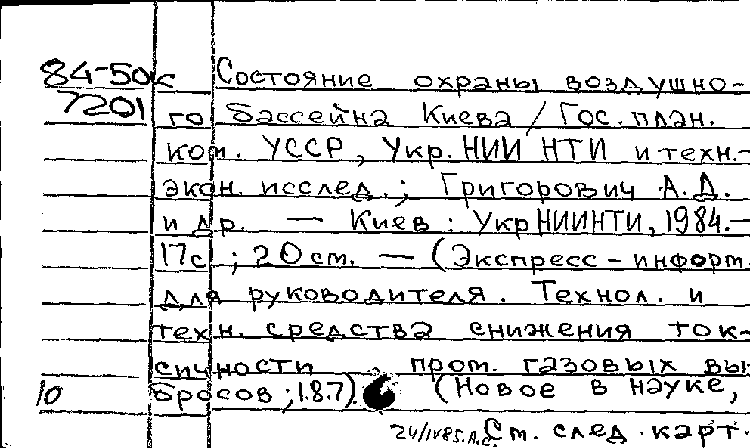 84-50к Состояние охраны воздушно-
7201 го бассейна Киева / Гос. план.
ком. УССР, Укр. НИИ НТИ и техн.-
экон. исслед.; Григорович А.Д.
и др. — Киев : УкрНИИНТИ, 1984.—
17с ; 20 см. — (Экспресс-информ.
для руководителя. Технол. и
техн. средства снижения ток-
сичности пром. газовых вы-
10 бросов ; 1.8.7). (Новое в науке,
См. след. карт.